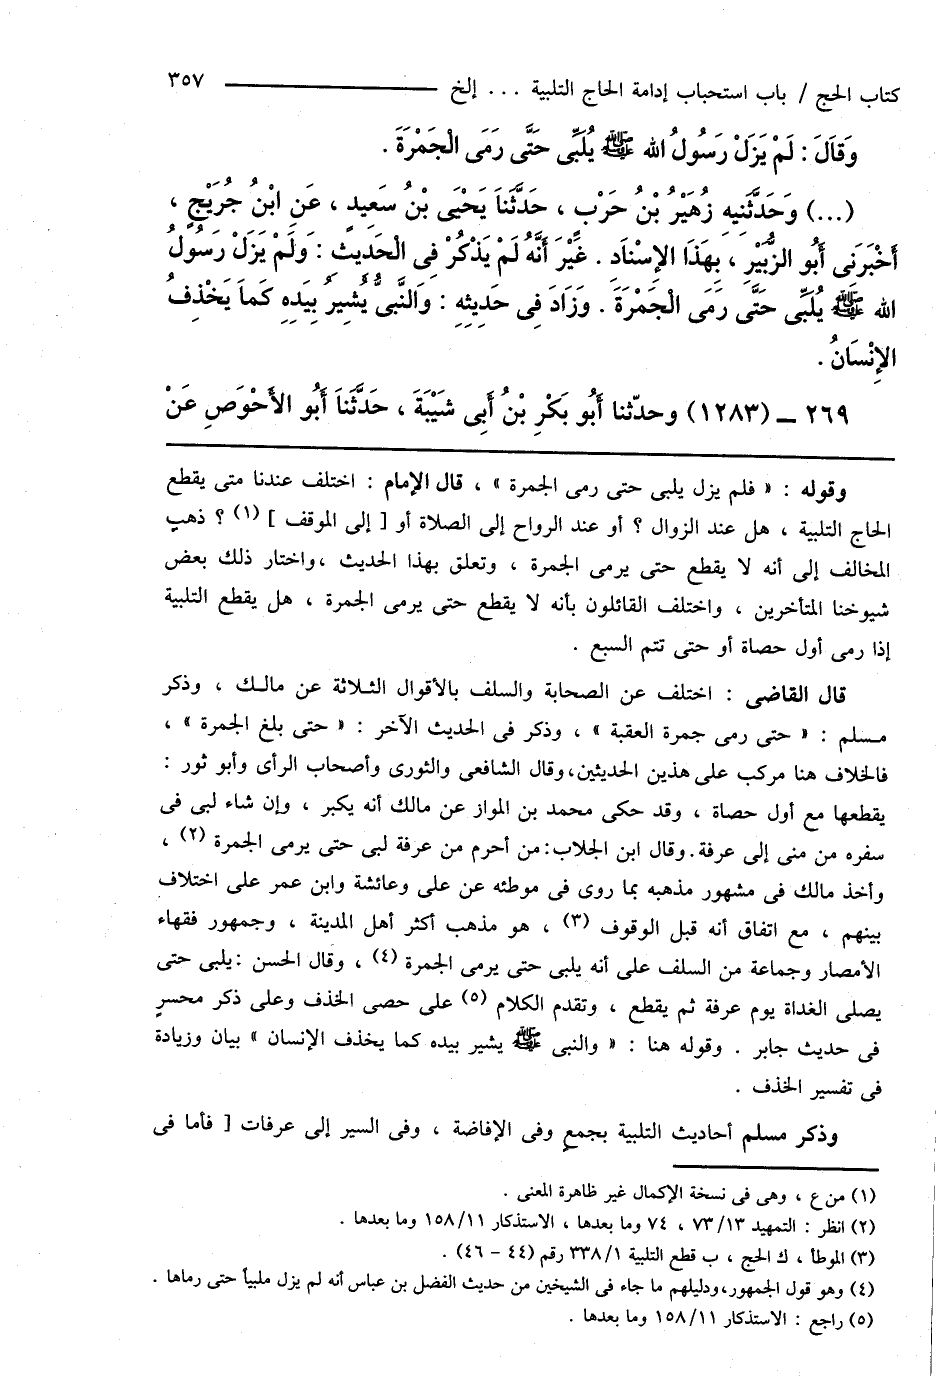 كتاب الحج / باب استحباب إدامة الحاج التلبية ... إلخ ــــــــ ٣٥٧
وَقَالَ : لَمْ يَزَلْ رَسُولُ الله ﷺ يُلَبِّى حَتَّى رَمَى الْجَمْرَةَ .
(...) وَحَدَّثَنِيهِ زُهَيْرُ بْنُ حَرْبٍ ، حَدَّثَنَا يَحْيَى بْنُ سَعِيدٍ ، عَنِ ابْنُ جُرَيْجٍ ،
أَخْبَرَنِى أَبُو الزُّبَيْرِ ، بِهَذَا الإِسْنَادِ . غَيْرَ أَنَّهُ لَمْ يَذْكُرْ فِى الْحَدِيثِ : وَلَمْ يَزَلْ رَسُولُ
الله ﷺ يُلَبِّى حَتَّى رَمَى الْجَمْرَةَ . وَزَادَ فِى حَدِيثِهِ : وَالنَّبىُّ يُشِيرُ بِيَدِهِ كَمَا يَخْذِفُ
الإِنْسَانُ .
٢٦٩ ــ (١٢٨٣) وحدّثنا أَبُو بَكْرِ بْنُ أَبِى شَيْبَةَ ، حَدَّثَنَا أَبُو الأَحْوَصِ عَنْ
وقوله : « فلم يزل يلبى حتى رمى الجمرة » ، قال الإمام : اختلف عندنا متى يقطع
الحاج التلبية ، هل عند الزوال ؟ أو عند الرواح إلى الصلاة أو [ إلى الموقف ] (١) ؟ ذهب
المخالف إلى أنه لا يقطع حتى يرمى الجمرة ، وتعلق بهذا الحديث ،واختار ذلك بعض
شيوخنا المتأخرين ، واختلف القائلون بأنه لا يقطع حتى يرمى الجمرة ، هل يقطع التلبية
إذا رمى أول حصاة أو حتى تتم السبع .
قال القاضى : اختلف عن الصحابة والسلف بالأقوال الثلاثة عن مالك ، وذكر
مسلم : « حتى رمى جمرة العقبة » ، وذكر فى الحديث الآخر : « حتى بلغ الجمرة » ،
فالخلاف هنا مركب على هذين الحديثين،وقال الشافعى والثورى وأصحاب الرأى وأبو ثور :
يقطعها مع أول حصاة ، وقد حكى محمد بن المواز عن مالك أنه يكبر ، وإن شاء لبى فى
سفره من منى إلى عرفة.وقال ابن الجلاب:من أحرم من عرفة لبى حتى يرمى الجمرة (٢) ،
وأخذ مالك فى مشهور مذهبه بما روى فى موطئه عن على وعائشة وابن عمر على اختلاف
بينهم ، مع اتفاق أنه قبل الوقوف (٣) ، هو مذهب أكثر أهل المدينة ، وجمهور فقهاء
الأمصار وجماعة من السلف على أنه يلبى حتى يرمى الجمرة (٤) ، وقال الحسن :يلبى حتى
يصلى الغداة يوم عرفة ثم يقطع ، وتقدم الكلام (٥) على حصى الخذف وعلى ذكر محسر
فى حديث جابر . وقوله هنا : « والنبى ﷺ يشير بيده كما يخذف الإنسان » بيان وزيادة
فى تفسير الخذف .
وذكر مسلم أحاديث التلبية بجمعٍ وفى الإفاضة ، وفى السير إلى عرفات [ فأما فى
(١) من ع ، وهى فى نسخة الإكمال غير ظاهرة المعنى .
(٢) انظر : التمهيد ٧٣/١٣ ، ٧٤ وما بعدها ، الاستذكار ١٥٨/١١ وما بعدها .
(٣) الموطأ ، ك الحج ، ب قطع التلبية ٣٣٨/١ رقم (٤٤ - ٤٦) .
(٤) وهو قول الجمهور،ودليلهم ما جاء فى الشيخين من حديث الفضل بن عباس أنه لم يزل ملبياً حتى رماها .
(٥) راجع : الاستذكار ١٥٨/١١ وما بعدها .